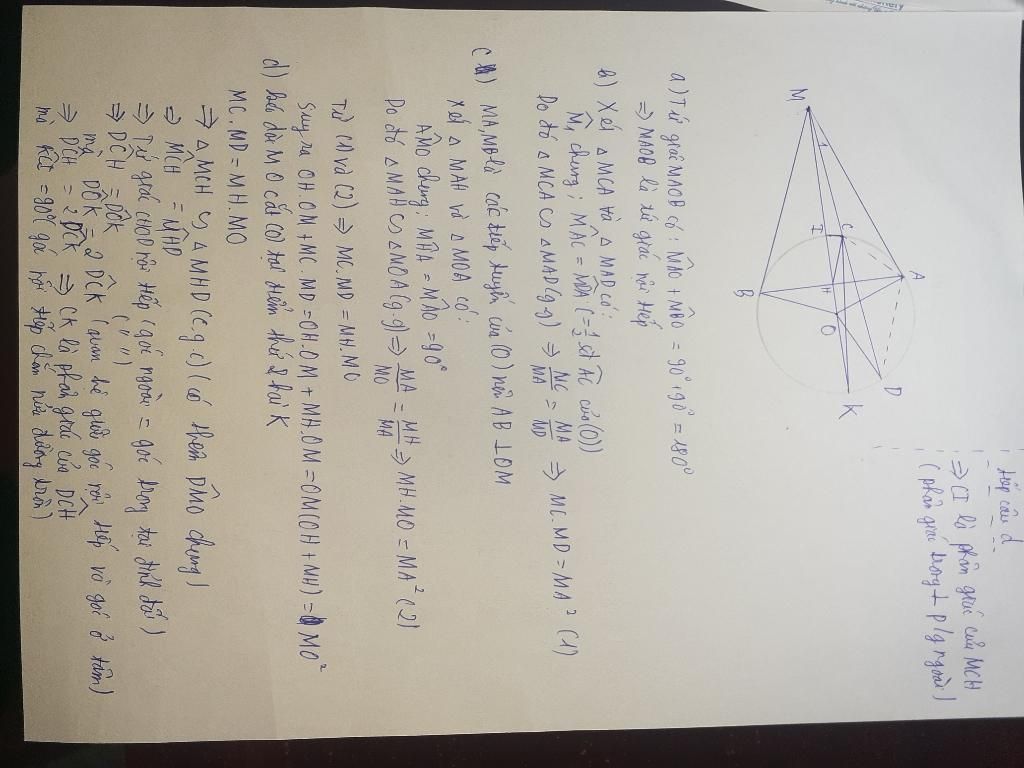 M
A
B
C
D
I
H
O
K
1
a) Tứ giác MAOB có: MÂO + MB̂O = 90° + 90° = 180°
⇒ MAOB là tứ giác nội tiếp
b) Xét △MCA và △MAD có:
M̂₁ chung; MÂC = MD̂A (= 1/2 sđ AC của (O))
Do đó △MCA ∽ △MAD (g.g) ⇒ MC/MA = MA/MD ⇒ MC.MD = MA² (1)
c) MA, MB là các tiếp tuyến của (O) nên AB ⊥ OM
Xét △MAH và △MOA có:
AM̂O chung; MĤA = MÂO = 90°
Do đó △MAH ∽ △MOA (g.g) ⇒ MA/MO = MH/MA ⇒ MH.MO = MA² (2)
Từ (1) và (2) ⇒ MC.MD = MH.MO
Suy ra OH.OM + MC.MD = OH.OM + MH.OM = OM(OH + MH) = MO²
d) kéo dài MO cắt (O) tại điểm thứ 2 K
MC.MD = MH.MO
⇒ △MCH ∽ △MHD (c.g.c) (có thêm DM̂O chung)
⇒ MĈH = MĤD
⇒ Tứ giác CHOD nội tiếp (góc ngoài = góc trong tại đỉnh đối)
⇒ DĈH = DÔK (")
mà DÔK = 2 DĈK (quan hệ giữa góc nội tiếp và góc ở tâm)
⇒ DĈH = 2 DĈK ⇒ CK là phân giác của DĈH
mà KĈI = 90° (góc nội tiếp chắn nửa đường tròn)
tiếp câu d
⇒ CI là phân giác của MCH
(phân giác trong + p/g ngoài)